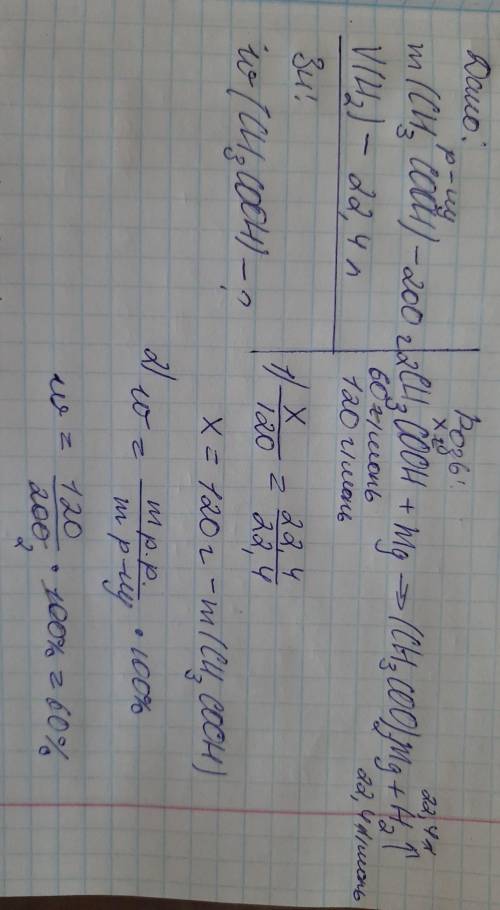 Дано:
р-ну
m(CH₃COOH) - 200 г
V(H₂) - 22,4 л
Зн:
w(CH₃COOH) - ?
Розв:
x г 22,4 л
2CH₃COOH + Mg → (CH₃COO)₂Mg + H₂↑
60 г/моль 22,4 л/моль
120 г/моль
1) x/120 = 22,4/22,4
x = 120 г - m(CH₃COOH)
2) w = m р.р/m р-ну · 100%
w = 120/200 · 100% = 60%
2